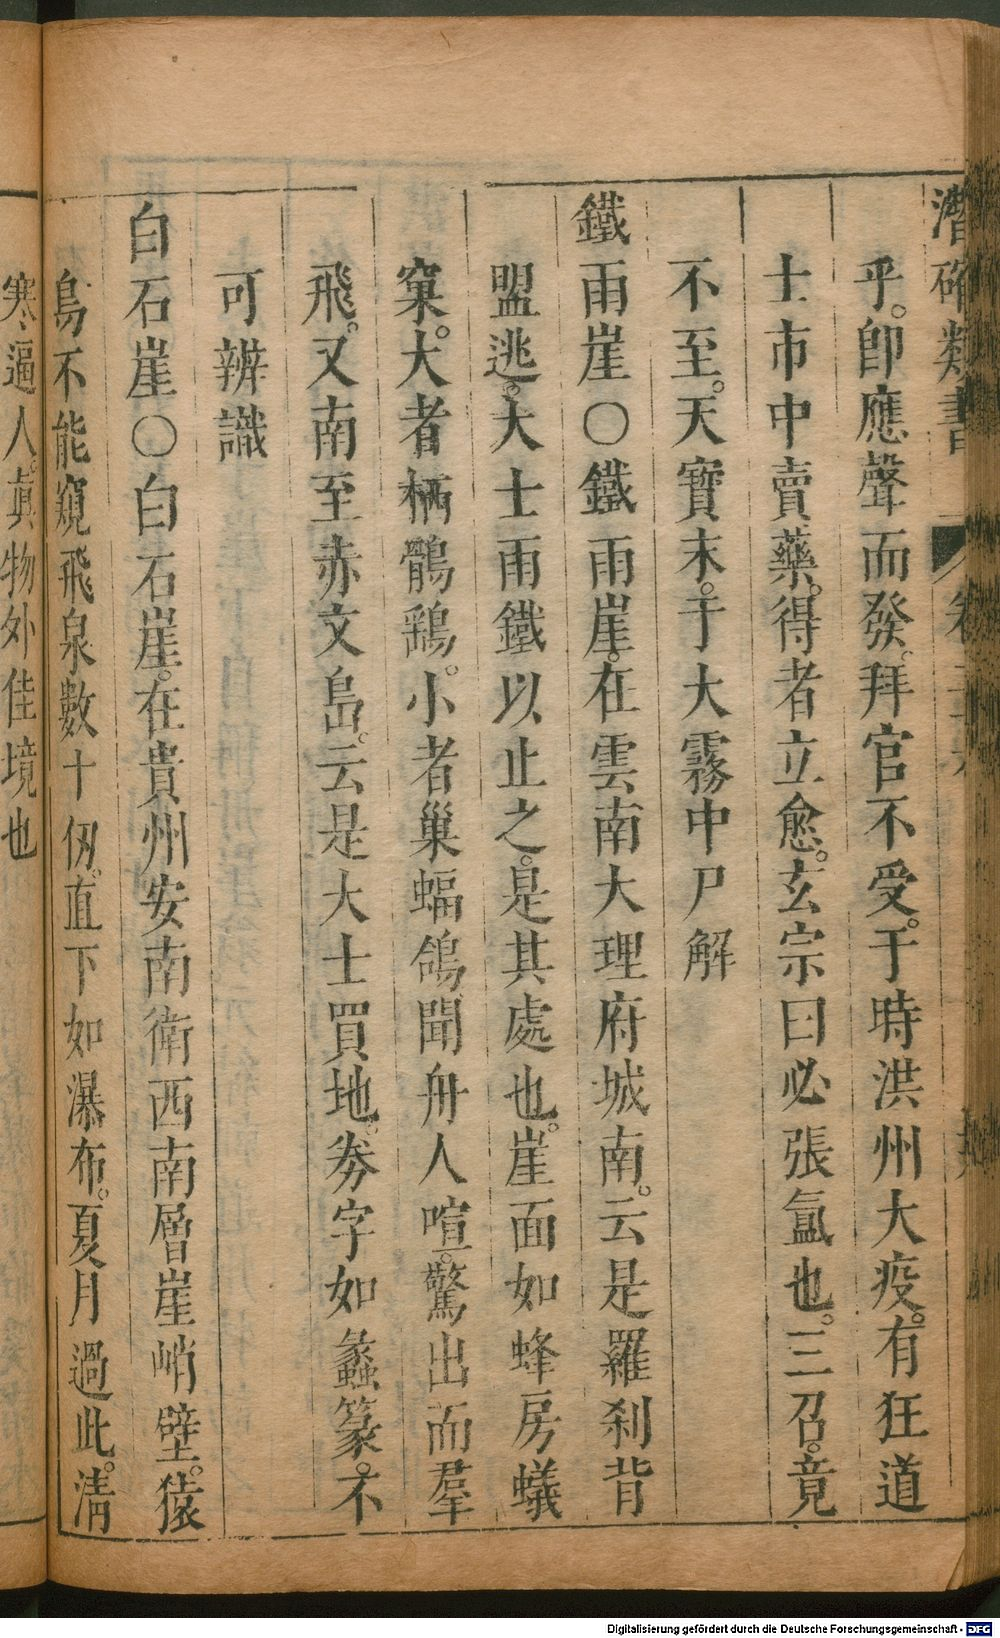 潛確類書
乎。卽應聲而發。拜官不受。于時洪州大疫。有狂道
士市中賣藥。得者立愈。玄宗曰必張氳也。三召。竟
不至。天寶末。于大霧中尸解
鐵雨崖〇鐵雨崖。在雲南大理府城南。云是羅刹背
盟逃。大士雨鐵以止之。是其處也。崖面如蜂房蟻
窠。大者栖鶻鷄。小者巢蝠鴿。聞舟人喧。驚出而羣
飛。又南至赤文島。云是大士買地。券字如蠡篆。不
可辨識
白石崖〇白石崖。在貴州安南衛西南層崖峭壁。猿
鳥不能窺飛泉數十仭。直下如瀑布。夏月過此。淸
寒逼人。眞物外佳境也
Digitalisierung gefördert durch die Deutsche Forschungsgemeinschaft - DFG